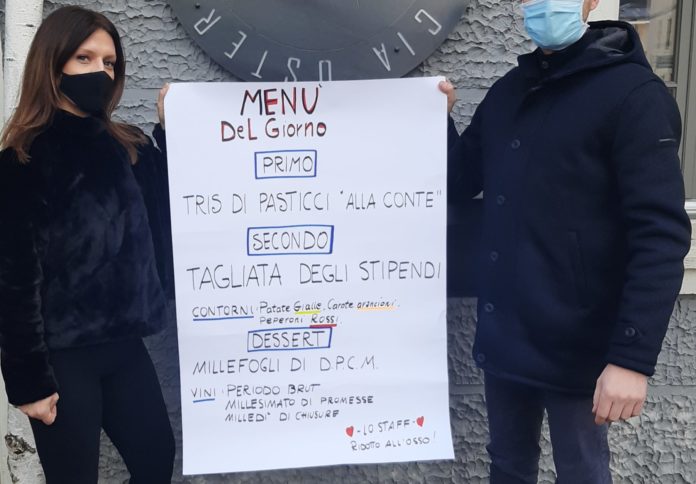 CIA OSTER
MENU'
DeL GiorNo
PRIMO
TRIS DI PASTICCI "ALLA CONTE"
SECONDO
TAGLIATA DEGLI STIPENDI
CONTORNI: Patate Gialle, Carote arancioni,
Peperoni Rossi
DESSERT
MILLEFOGLI DI D.P.C.M.
VINI: PERIODO BRUT
MILLESIMATO DI PROMESSE
MILLEDI' DI CHIUSURE
- LO STAFF -
RIDOTO ALL'OSSO!